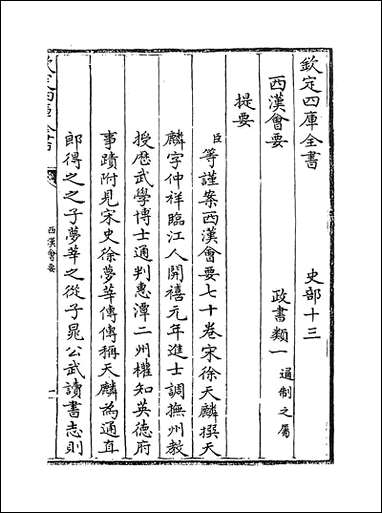 欽定四庫全書　史部十三
西漢會要　政書類一通制之屬
提要
臣等謹案西漢會要七十卷宋徐天麟撰天
麟字仲祥臨江人開禧元年進士調撫州教
授歷武學博士通判惠潭二州權知英德府
事蹟附見宋史徐夢莘傳傳稱天麟為通直
郎得之之子夢莘之從子晁公武讀書志則
西漢會要